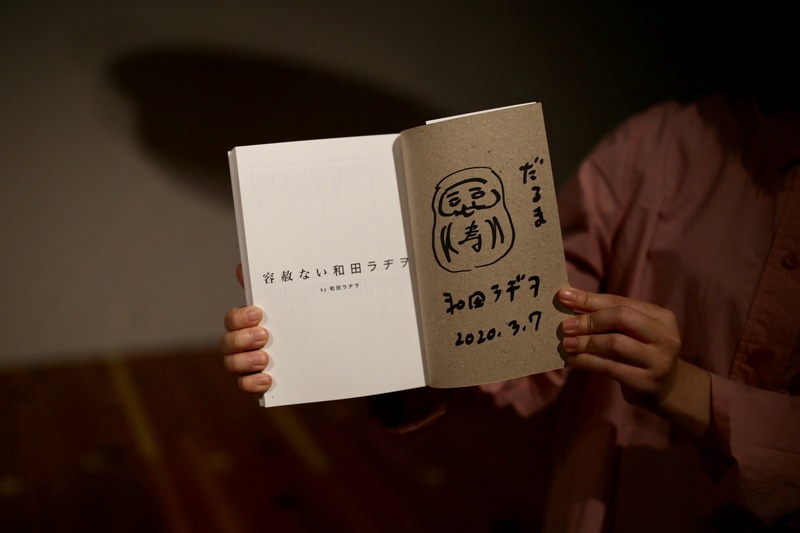 容赦ない和田ラヂヲ
by 和田ラヂヲ
だるま
寿
和田ラヂヲ
2020.3.7